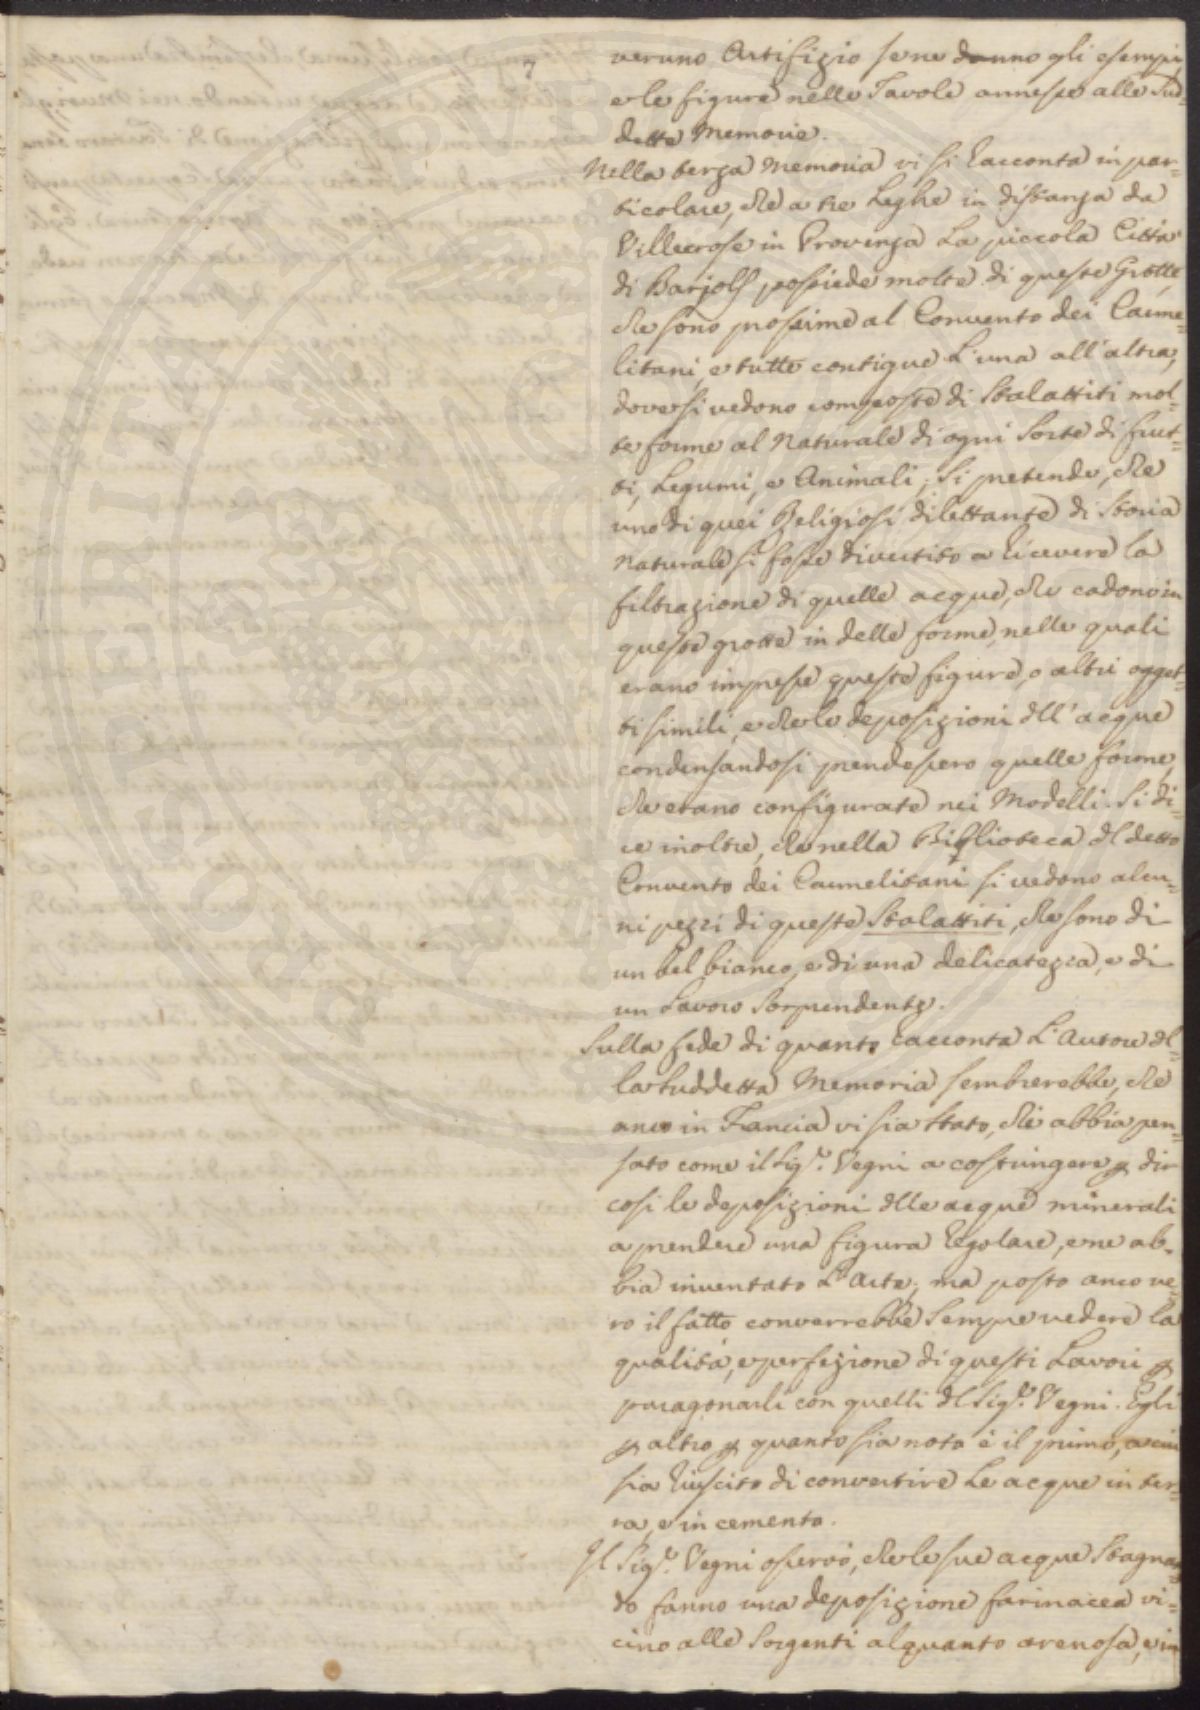 7
veruno Artifizio se ne danno gli esempi,
e le figure nelle Tavole annesse alle Sud=
dette Memorie.
Nella terza Memoria vi si racconta in par=
ticolare, che a tre Leghe in distanza da
Villecrose in Provenza La piccola Città
di Barjols possiede molte di queste Grotte,
che sono prossime al Convento dei Carme=
litani, e tutte contigue L'una all'altra,
dove si vedono composte di Stalattiti mol=
te forme al Naturale di ogni Sorte di frut=
ti, Legumi, e Animali; Si pretende, che
uno di quei Religiosi dilettante di Storia
Naturale si fosse divertito a ricevere la
filtrazione di quelle acque, che cadono in
queste grotte in delle forme, nelle quali
erano impresse queste figure, o altri ogget=
ti simili, e che le deposizioni dll'acque
condensandosi prendessero quelle forme,
che erano configurate nei Modelli. Si di=
ce inoltre, che nella Biblioteca dl detto
Convento dei Carmelitani si vedono alcu=
ni pezzi di queste Stalattiti, che sono di
un bel bianco, e di una delicatezza, e di
un Lavoro Sorprendente.
Sulla fede di quanto racconta L'Autore dl=
la Suddetta Memoria sembrerebbe, che
anco in Francia vi sia stato, chi abbia pen=
sato come il Sigr. Vegni a costringere p dir
così le deposizioni dlle acque minerali
a prendere una figura regolare, e ne ab=
bia inventato L'Arte; ma posto anco ve=
ro il fatto converrebbe Sempre vedere la
qualità, e perfezione di questi Lavori p
paragonarli con quelli dl Sigr. Vegni. Egli
p altro p quanto sia noto è il primo, a cui
sia riuscito di convertire Le acque in ter=
ra, e in cemento.
Il Sigr. Vegni osservò, che le sue acque Stagnan=
do fanno una deposizione farinacea vi=
cino alle Sorgenti alquanto arenosa, e in